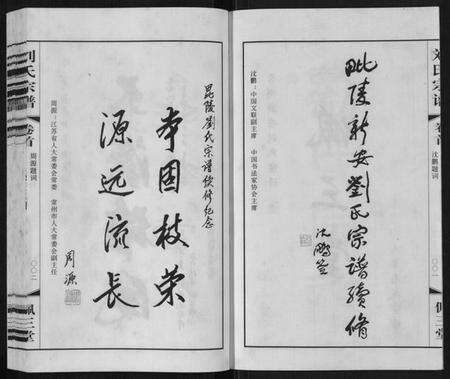 刘氏宗谱
卷首
沈鹏题词
〇〇一
佩三堂
毗陵新安劉氏宗譜續修
沈鹏签
沈鹏：中国文联副主席　中国书法家协会主席
毘陵劉氏宗譜续修纪念
本固枝荣
源远流长
周源
周源：江苏省人大常委会常委　常州市人大常委会副主任
刘氏宗谱
卷首
周源题词
〇〇二
佩三堂